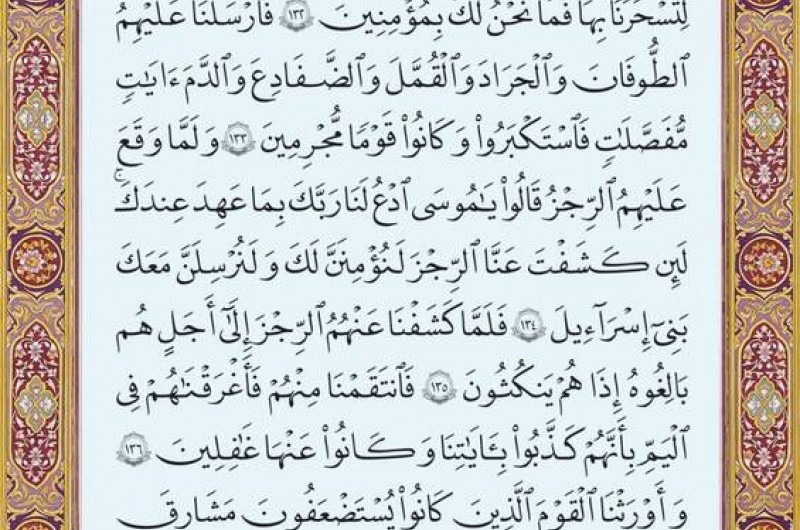 لِّتَسْحَرَنَا بِهَا فَمَا نَحْنُ لَكَ بِمُؤْمِنِينَ ١٣٢ فَأَرْسَلْنَا عَلَيْهِمُ
ٱلطُّوفَانَ وَٱلْجَرَادَ وَٱلْقُمَّلَ وَٱلضَّفَادِعَ وَٱلدَّمَ ءَايَٰتٍ
مُّفَصَّلَٰتٍ فَٱسْتَكْبَرُوا۟ وَكَانُوا۟ قَوْمًا مُّجْرِمِينَ ١٣٣ وَلَمَّا وَقَعَ
عَلَيْهِمُ ٱلرِّجْزُ قَالُوا۟ يَٰمُوسَى ٱدْعُ لَنَا رَبَّكَ بِمَا عَهِدَ عِندَكَ ۖ
لَئِن كَشَفْتَ عَنَّا ٱلرِّجْزَ لَنُؤْمِنَنَّ لَكَ وَلَنُرْسِلَنَّ مَعَكَ
بَنِىٓ إِسْرَٰٓءِيلَ ١٣٤ فَلَمَّا كَشَفْنَا عَنْهُمُ ٱلرِّجْزَ إِلَىٰٓ أَجَلٍ هُم
بَٰلِغُوهُ إِذَا هُمْ يَنكُثُونَ ١٣٥ فَٱنتَقَمْنَا مِنْهُمْ فَأَغْرَقْنَٰهُمْ فِى
ٱلْيَمِّ بِأَنَّهُمْ كَذَّبُوا۟ بِـَٔايَٰتِنَا وَكَانُوا۟ عَنْهَا غَٰفِلِينَ ١٣٦
وَأَوْرَثْنَا ٱلْقَوْمَ ٱلَّذِينَ كَانُوا۟ يُسْتَضْعَفُونَ مَشَٰرِقَ